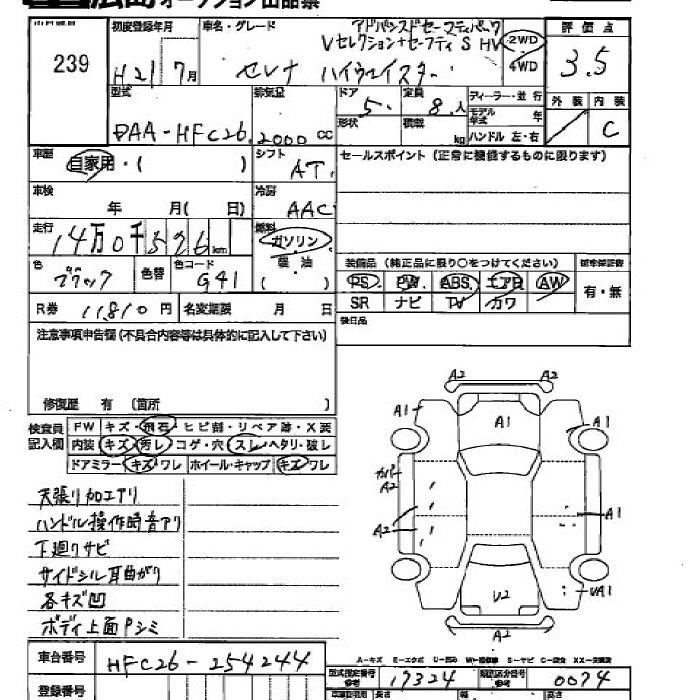 オークション出品票
239
初度登録年月 車名・グレード
H21 7月 セレナ ハイウェイスター
アドバンスドセーフティパック
Vセレクション+セーフティ S HV
2WD
4WD
評価点
3.5
外装 内装
C
型式 排気量
DAA-HFC26 2000 CC
ドア 定員
5. 8人
形状 積載 kg
ディーラー・並行
モデル年式 年
ハンドル 左・右
車歴 自家用・( )
シフト AT.
セールスポイント (正常に機能するものに限ります)
車検 年 月( 日)
冷房 AAC
走行 14万0千526km
燃料 ガソリン
軽油
( )
色 ブラック 色替 色コード G41
装備品 (純正品に限り○をつけてください)
PS. PW. ABS. エアB AW
SR ナビ TV カワ
有・無
R券 11810円 名変期限 月 日
後日品
注意事項申告欄 (不具合内容等は具体的に記入して下さい)
修復歴 有 (箇所 )
検査員記入欄
FW キズ・飛石・ヒビ割・リペア跡・X要
内装 キズ・汚レ・コゲ・穴・スレ・ヘタリ・破レ
ドアミラー キズ・ワレ ホイール・キャップ キズ・ワレ
天張り加工アリ
ハンドル操作時音アリ
下廻りサビ
サイドシル耳曲がり
各キズ凹
ボディ上面Pシミ
A2 A2
A1 A1 A2
カバー
A2
A2 A1
U2 UA1
A2
A-キズ E-エクボ U-凹み W-補修跡 S-サビ C-腐食 XX-交換済
車台番号 HFC26-254244
型式指定番号 参考 17324
類別区分番号 参考 0074
登録番号
長さ 幅 高さ